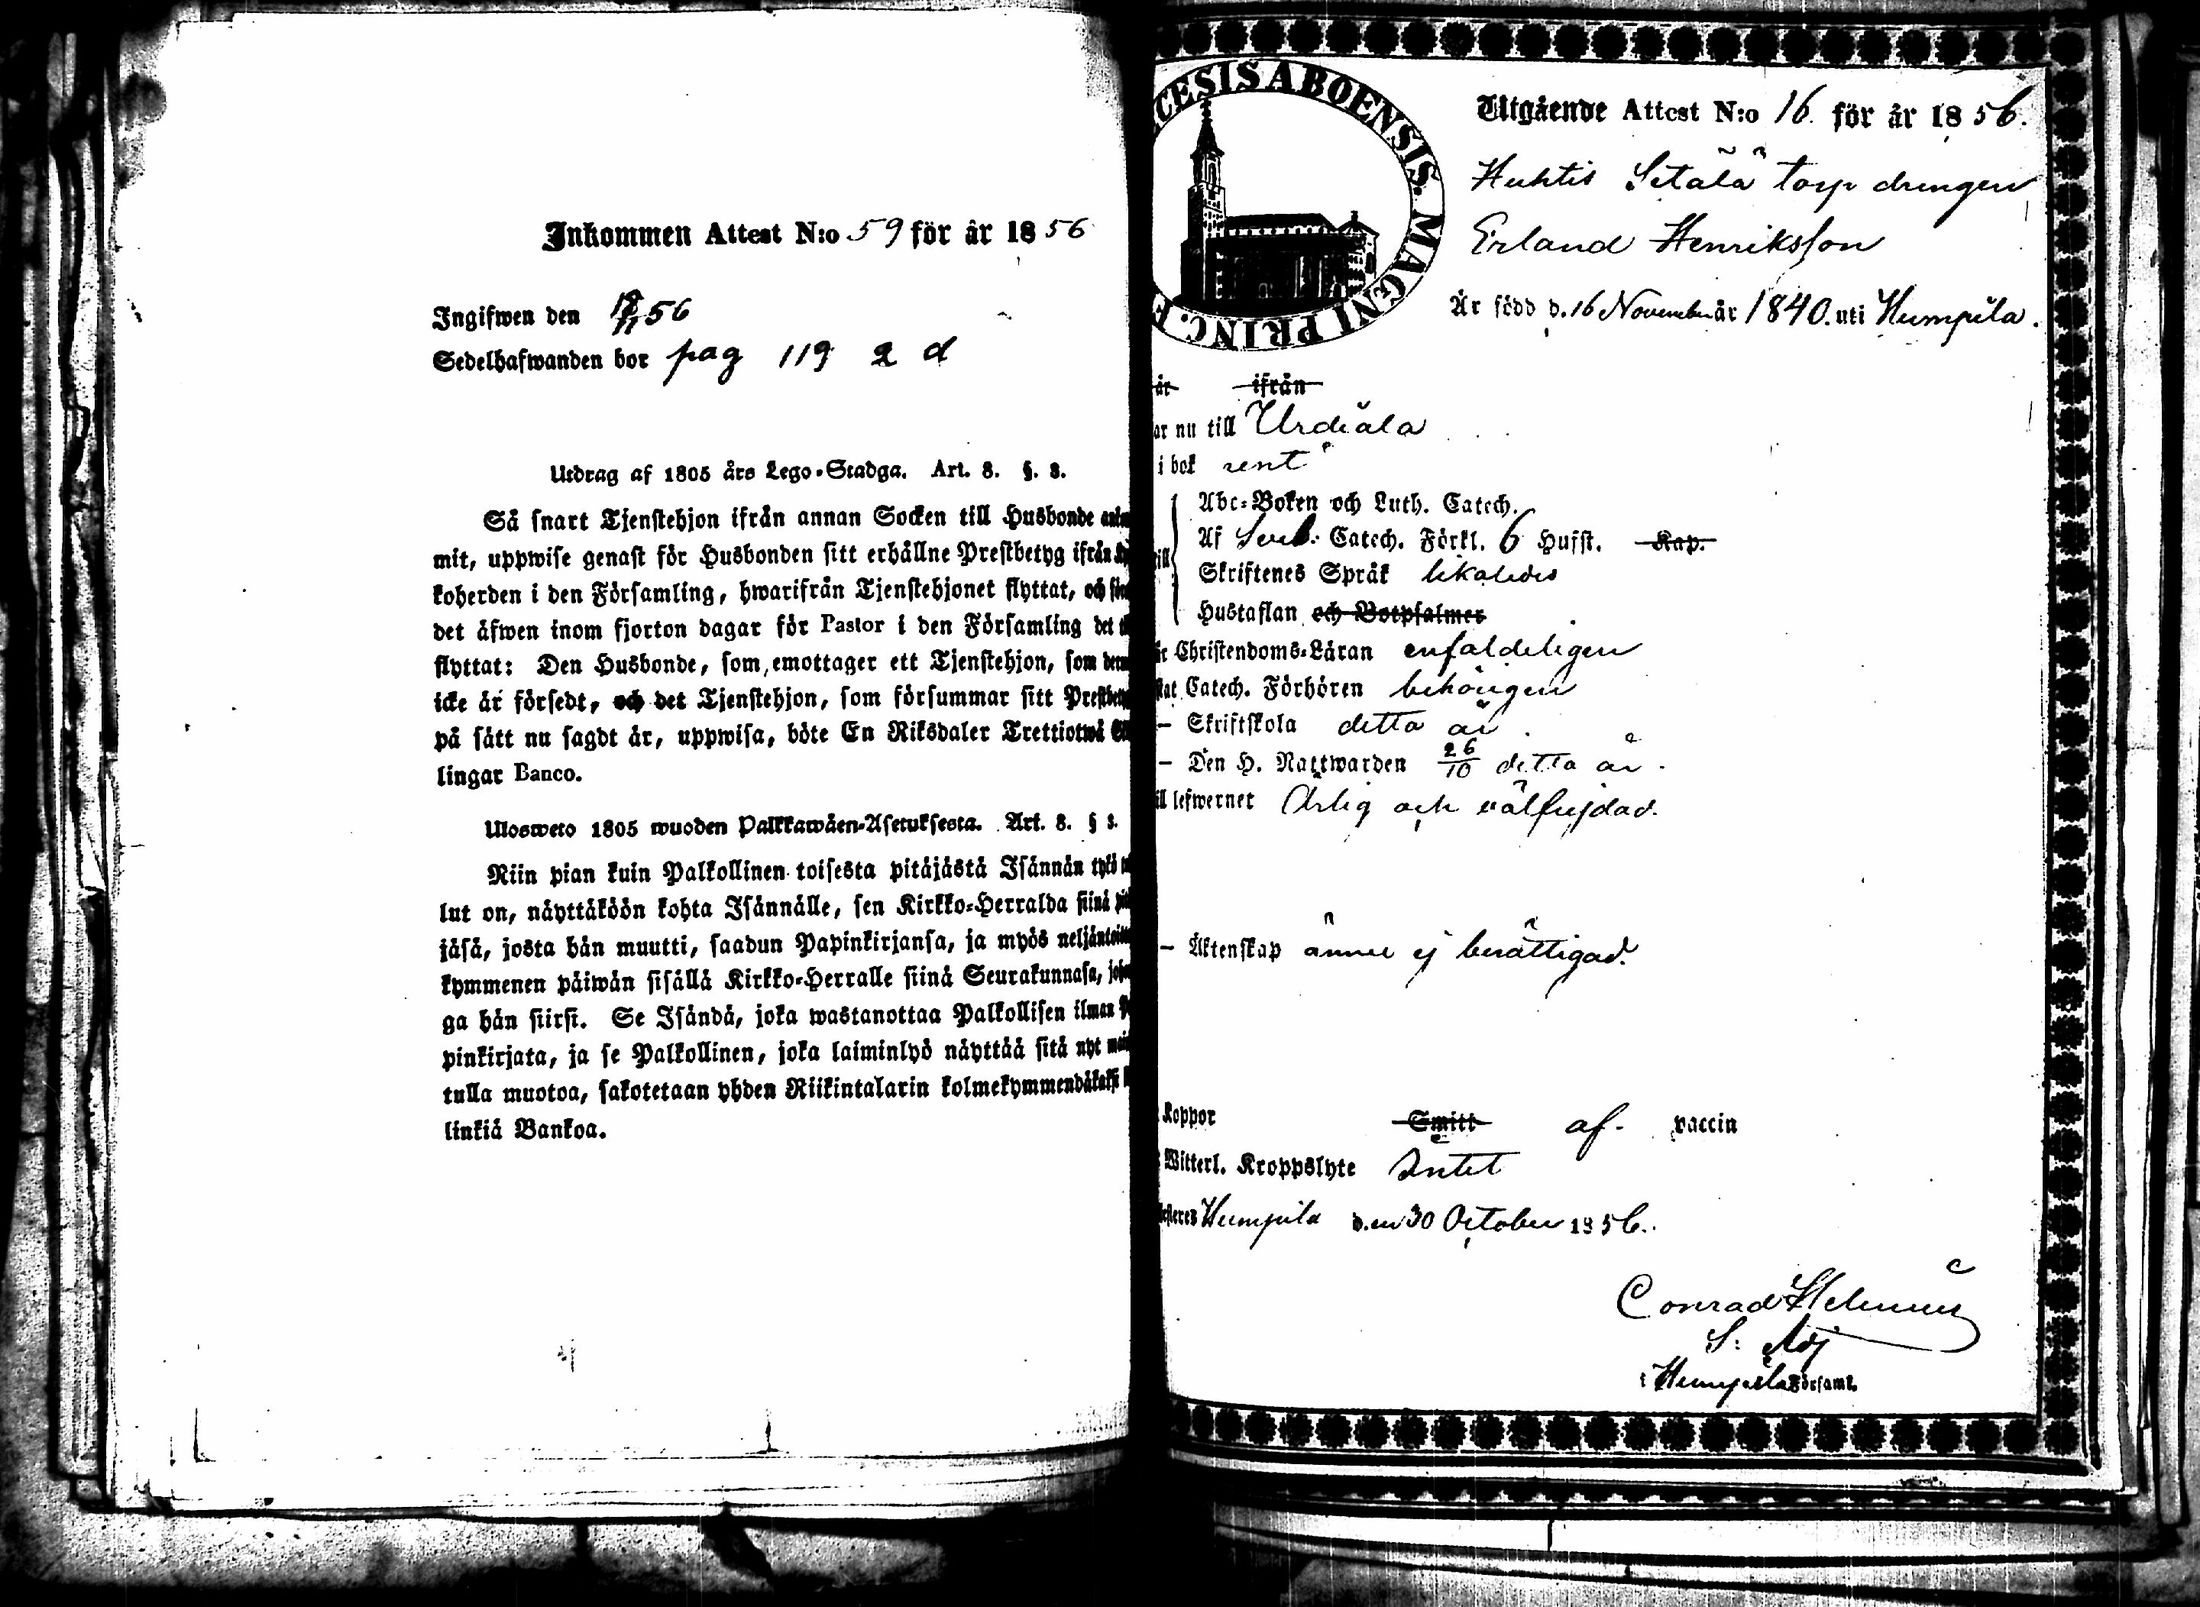 Inkommen Attest N:o 59 för år 1856
Ingifwen den 56
Sedelhafwanden bor pag 119 2 d
Utdrag af 1805 års Lego-Stadga. Art. 8. §. 3.
Så snart Tjenstehjon ifrån annan Socken till Husbonde
mit, uppwise genast för Husbonden sitt erhållne Prestbetyg ifrån
koherden i den Församling, hwarifrån Tjenstehjonet flyttat, och
det äfwen inom fjorton dagar för Pastor i den Församling det
flyttat: Den Husbonde, som emottager ett Tjenstehjon, som
icke är försedt, och det Tjenstehjon, som försummar sitt
på sätt nu sagdt är, uppwisa, böte En Riksdaler Trettiotwå
lingar Banco.
Ulosweto 1805 wuoden Palkkawäen-Asetuksesta. Art. 8. § 3.
Niin pian kuin Palkollinen toisesta pitäjästä Isännän tykö
lut on, näyttäköön kohta Isännälle, sen Kirkko-Herralda siinä
jäsä, josta hän muutti, saadun Papinkirjansa, ja myös
kymmenen päiwän sisällä Kirkko-Herralle siinä Seurakunnasa,
ga hän siirsi. Se Isändä, joka wastanottaa Palkollisen ilman
pinkirjata, ja se Palkollinen, joka laiminlyö näyttää sitä nyt
tulla muotoa, sakotetaan yhden Riikintalarin kolmekymmendäkaksi
linkiä Bankoa.
CESIS ABOENSIS. MAGNI PRINC. F
Utgående Attest N:o 16 för år 1856.
Huhtis Setälä torp drengen
Erland Henriksson
Är född d. 16 November år 1840. uti Humpila.
år ifrån
ar nu till Urdiala
i bok rent
Abc-Boken och Luth. Catech.
Af Catech. Förkl. 6 Hufst. Kap.
Skriftenes Språk likaledes
Hustaflan och Botpsalmer
Christendoms-Läran enfaldeligen
Catech. Förhören behörigen
– Skriftskola detta år
– Den H. Nattwarden 26/10 detta år.
ill lefwernet Ärlig och välfrejdad.
– Äktenskap ännu ej berättigad.
Koppor Smitt af vaccin
Witterl. Kroppslyte Intet
Humpila den 30 October 1856.
Conrad Helenius
S: Adj
i Humpila Församl.